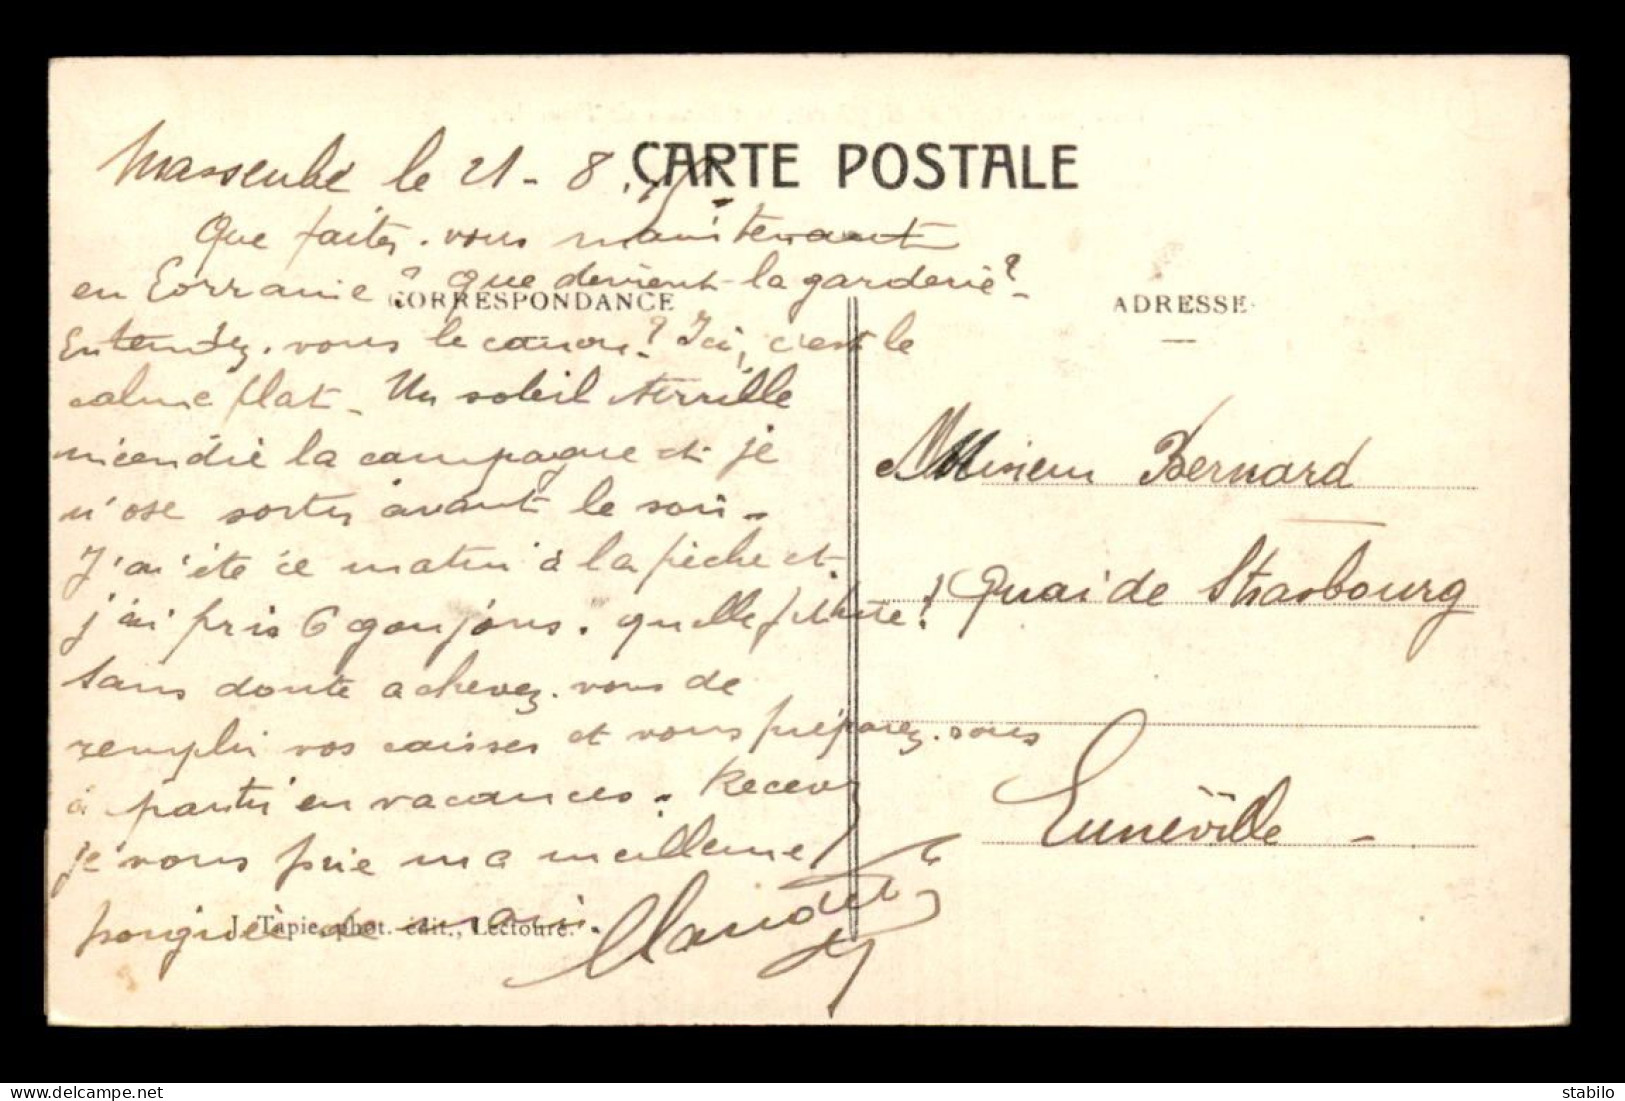 CARTE POSTALE
Masseube le 21-8.15
Que faites-vous maintenant
en Lorraine? Que devient la garderie?
CORRESPONDANCE
ADRESSE
Entendez-vous le canon? Ici, c'est le
calme plat. Un soleil terrible
incendie la campagne et je
n'ose sortir avant le soir.
J'ai été ce matin à la pêche et
j'ai pris 6 goujons. quelle
sans doute achevez-vous de
remplir vos caisses et vous préparez-vous
à partir en vacances. Recevez
je vous prie ma meilleure
poignée de main.
J. Tapie, phot. édit., Lectoure.
Monsieur Bernard
Quai de Strasbourg
Lunéville
stabilo